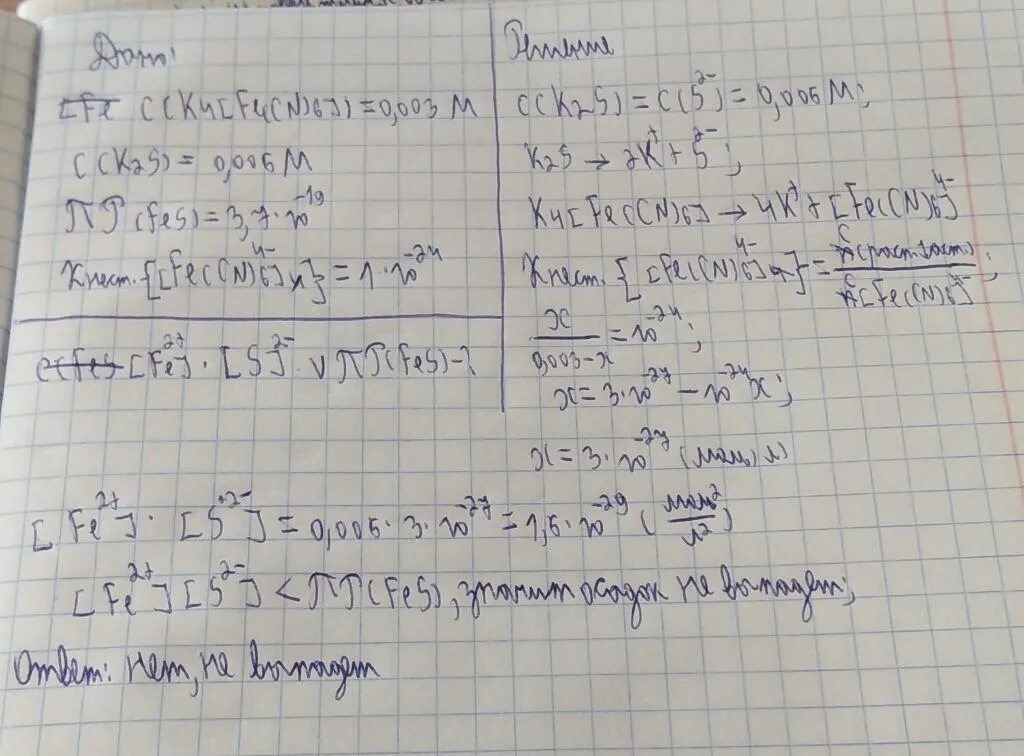 Дано:
C(K4[Fe(CN)6]) = 0,003 M
C(K2S) = 0,005 M
ПР(FeS) = 3,7·10^-19
Kнест.{[Fe(CN)6]^4-} = 1·10^-24
[Fe^2+]·[S]^2- v ПР(FeS)-?
Решение
C(K2S) = C(S^2-) = 0,005 M;
K2S → 2K^+ + S^2-;
K4[Fe(CN)6] → 4K^+ + [Fe(CN)6]^4-
Kнест.{[Fe(CN)6]^4-} = C / C[Fe(CN)6]^4-;
x / 0,003-x = 10^-24;
x = 3·10^-27 - 10^-24 x;
x = 3·10^-27 (моль/л)
[Fe^2+]·[S^2-] = 0,005·3·10^-27 = 1,5·10^-29 (моль^2/л^2)
[Fe^2+][S^2-] < ПР(FeS), значит осадок не выпадет;
Ответ: нет, не выпадет